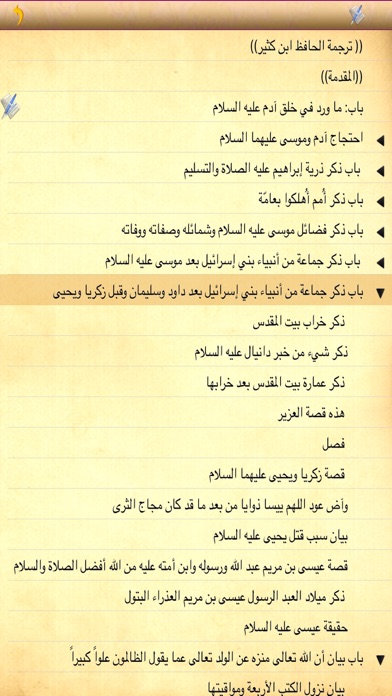 (( ترجمة الحافظ ابن كثير))
((المقدمة))
باب: ما ورد في خلق آدم عليه السلام
احتجاج آدم وموسى عليهما السلام
باب ذكر ذرية إبراهيم عليه الصلاة والتسليم
باب ذكر أُمم أُهلكوا بعامّة
باب ذكر فضائل موسى عليه السلام وشمائله وصفاته ووفاته
باب ذكر جماعة من أنبياء بني إسرائيل بعد موسى عليه السلام
باب ذكر جماعة من أنبياء بني إسرائيل بعد داود وسليمان وقبل زكريا ويحيى
ذكر خراب بيت المقدس
ذكر شيء من خبر دانيال عليه السلام
ذكر عمارة بيت المقدس بعد خرابها
هذه قصة العزير
فصل
قصة زكريا ويحيى عليهما السلام
وآض عود اللهم يبسا ذوايا من بعد ما قد كان مجاج الثرى
بيان سبب قتل يحيى عليه السلام
قصة عيسى بن مريم عبد الله ورسوله وابن أمته عليه من الله أفضل الصلاة والسلام
ذكر ميلاد العبد الرسول عيسى بن مريم العذراء البتول
حقيقة عيسى عليه السلام
باب بيان أن الله تعالى منزه عن الولد تعالى عما يقول الظالمون علواً كبيراً
بيان نزول الكتب الأربعة ومواقيتها